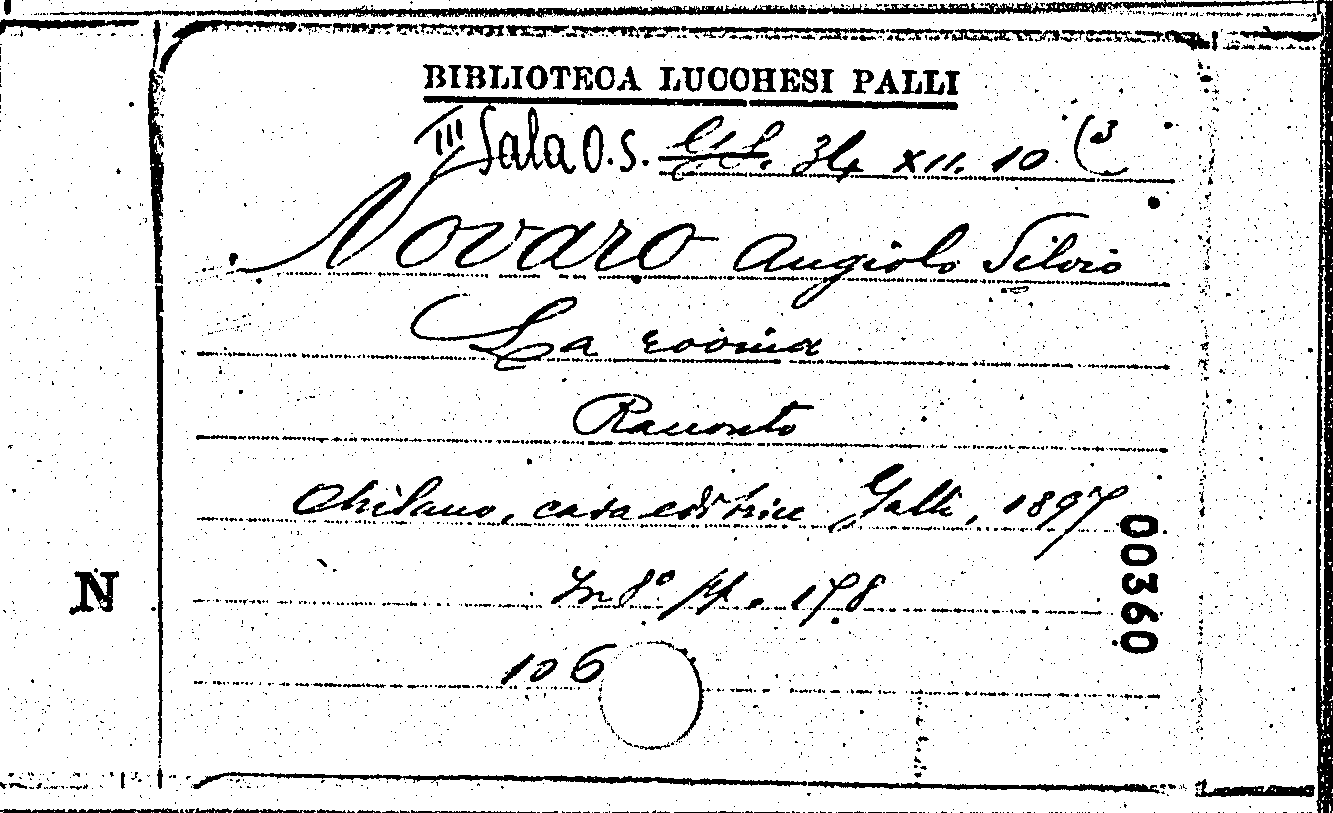 BIBLIOTECA LUCCHESI PALLI
III Sala O.S. 34 XII. 10 (3
Novaro Angiolo Silvio
La rovina
Racconto
Milano, casa editrice Galli, 1897
In 8° pp. 178
106
N
00360